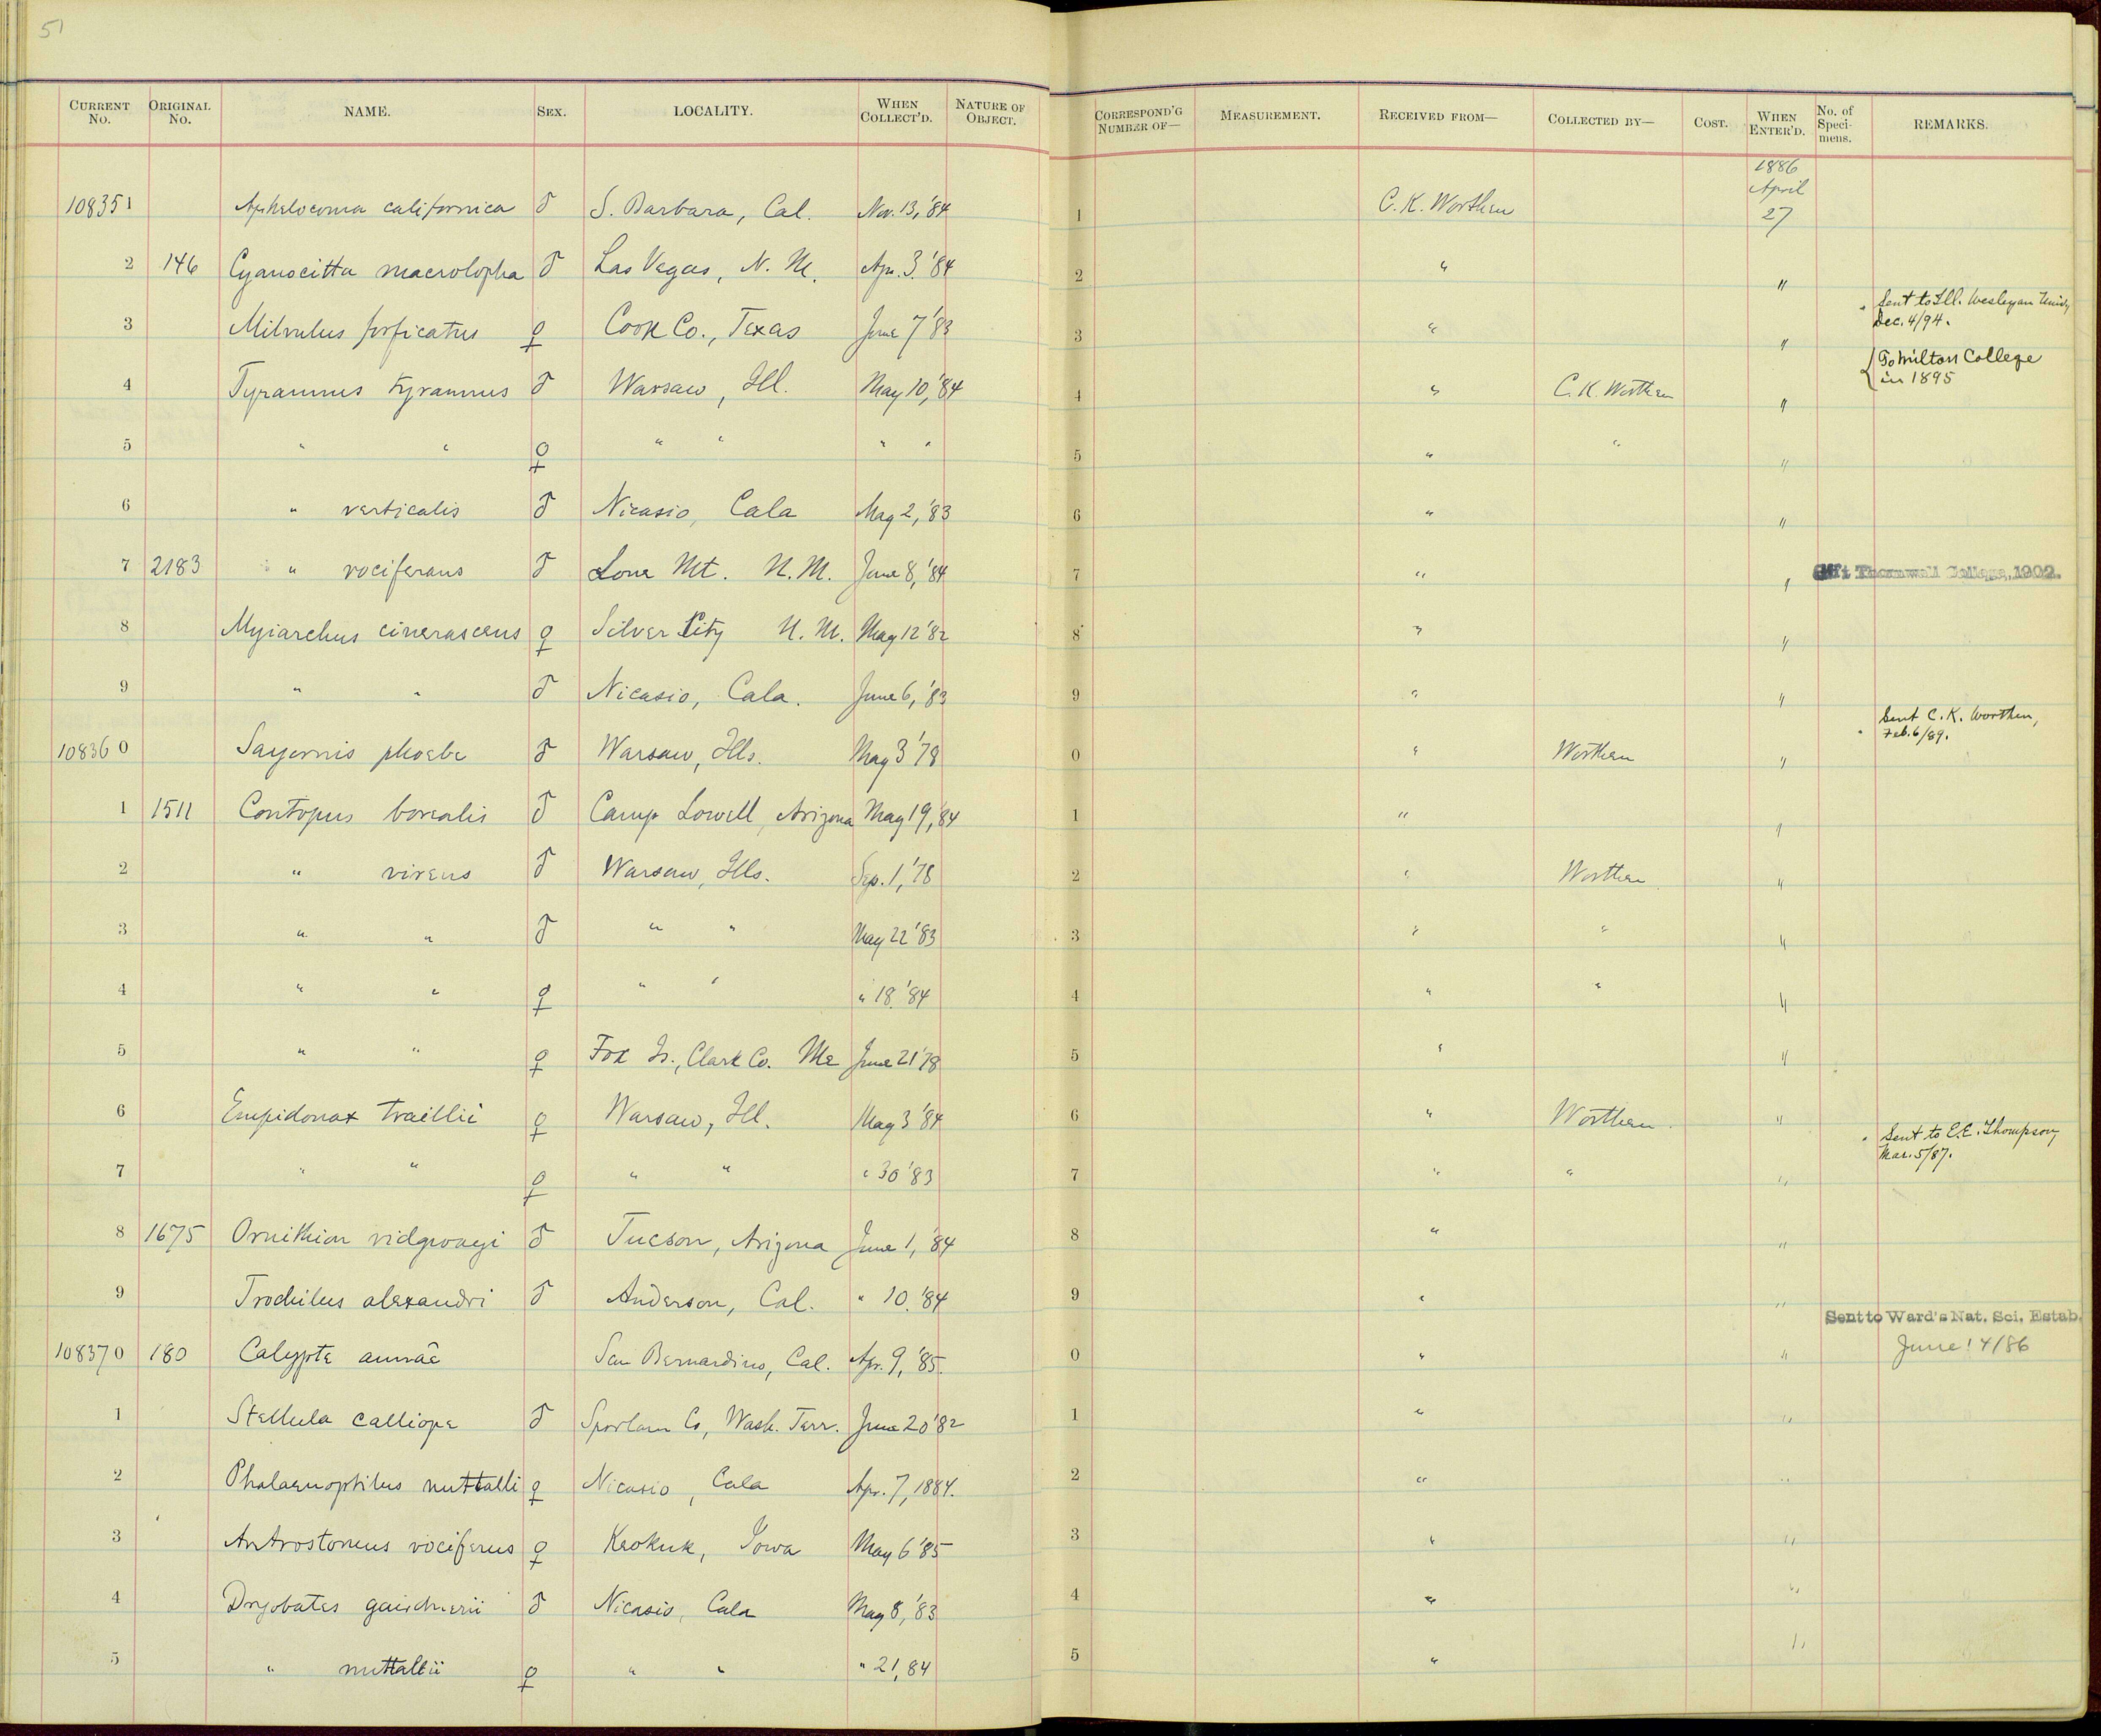 51
CURRENT No. ORIGINAL No. NAME. SEX. LOCALITY. WHEN COLLECT'D. NATURE OF OBJECT. CORRESPOND'G NUMBER OF— MEASUREMENT. RECEIVED FROM— COLLECTED BY— COST. WHEN ENTER'D. No. of Speci-mens. REMARKS.
1886
April
108351 Aphelocoma californica ♂ S. Barbara, Cal. Nov. 13, '84 1 C. K. Worthen 27
2 146 Cyanocitta macrolopha ♂ Las Vegas, N. M. Apr. 3. '84 2 " "
Sent to Ill. Wesleyan Univ,
Dec. 4/94.
3 Milvulus forficatus ♀ Cook Co., Texas June 7 '83 3 " "
{ To Milton College
in 1895
4 Tyrannus tyrannus ♂ Warsaw, Ill. May 10, '84 4 " C. K. Worthen "
5 " " ♀ " " " " 5 " " "
6 " verticalis ♂ Nicasio, Cala May 2, '83 6 " "
7 2183 " vociferans ♂ Lone Mt. N. M. June 8, '84 7 " " Gift Thornwell College, 1902.
8 Myiarchus cinerascens ♀ Silver City N. M. May 12 '82 8 " "
9 " " ♂ Nicasio, Cala. June 6, '83 9 " "
Sent C. K. Worthen,
Feb. 6/89.
108360 Sayornis phoebe ♂ Warsaw, Ills. May 3 '78 0 " Worthen "
1 1511 Contopus borealis ♂ Camp Lowell, Arizona May 19, '84 1 " "
2 " virens ♂ Warsaw, Ills. Sep. 1, '78 2 " Worthen "
3 " " ♂ " " May 22 '83 3 " " "
4 " " ♀ " " " 18. '84 4 " " "
5 " " ♀ Fox Is., Clark Co. Mo June 21 '78 5 " "
6 Empidonax traillii ♀ Warsaw, Ill. May 3 '84 6 " Worthen. "
Sent to E. E. Thompson,
Mar. 5/87.
7 " " ♀ " " " 30 '83 7 " " "
8 1675 Ornithion ridgwayi ♂ Tucson, Arizona June 1, '84 8 " "
9 Trochilus alexandri ♂ Anderson, Cal. " 10. '84 9 " "
Sent to Ward's Nat. Sci. Estab.
108370 180 Calypte annae San Bernardino, Cal. Apr. 9, '85. 0 " " June 14/86
1 Stellula calliope ♂ Co, Wash. Terr. June 20 '82 1 " "
2 Phalaenoptilus nuttalli ♀ Nicasio, Cala Apr. 7, 1884. 2 " "
3 Antrostomus vociferus ♀ Keokuk, Iowa May 6 '85 3 " "
4 Dryobates gairdnerii ♂ Nicasio, Cala May 8, '83 4 " "
5 " nuttallii ♀ " " " 21, 84 5 " "